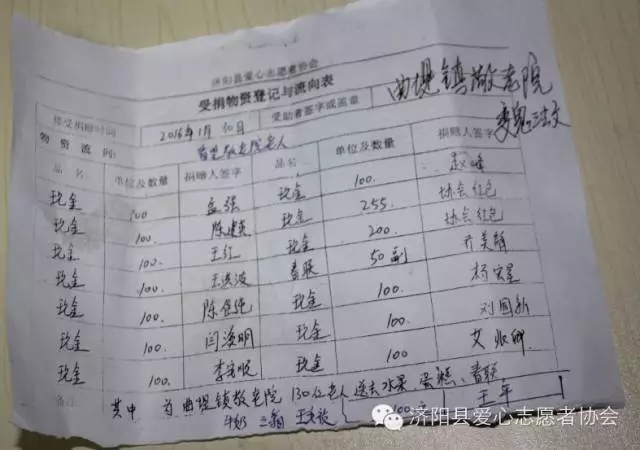 济阳县爱心志愿者协会
受捐物资登记与流向表
接受捐赠时间 2016年1月10日 受助者签字或盖章 曲堤镇敬老院
物资流向: 曲堤敬老院老人
品名 单位及数量 捐赠人签字 品名 单位及数量 捐赠人签字
现金 100 孟强 现金 100. 赵峰
现金 100. 陈建英 现金 255. 协会红包
现金 100. 王红 现金 200 协会红包
现金 100. 王洪波 春联 50副
现金 100. 现金 100
现金 100. 闫海明 现金 100. 刘国新
现金 100. 现金 100.
备注 其中 为曲堤镇敬老院130位老人送去水果 蛋糕、春联
牛奶 100元 王年
济阳县爱心志愿者协会